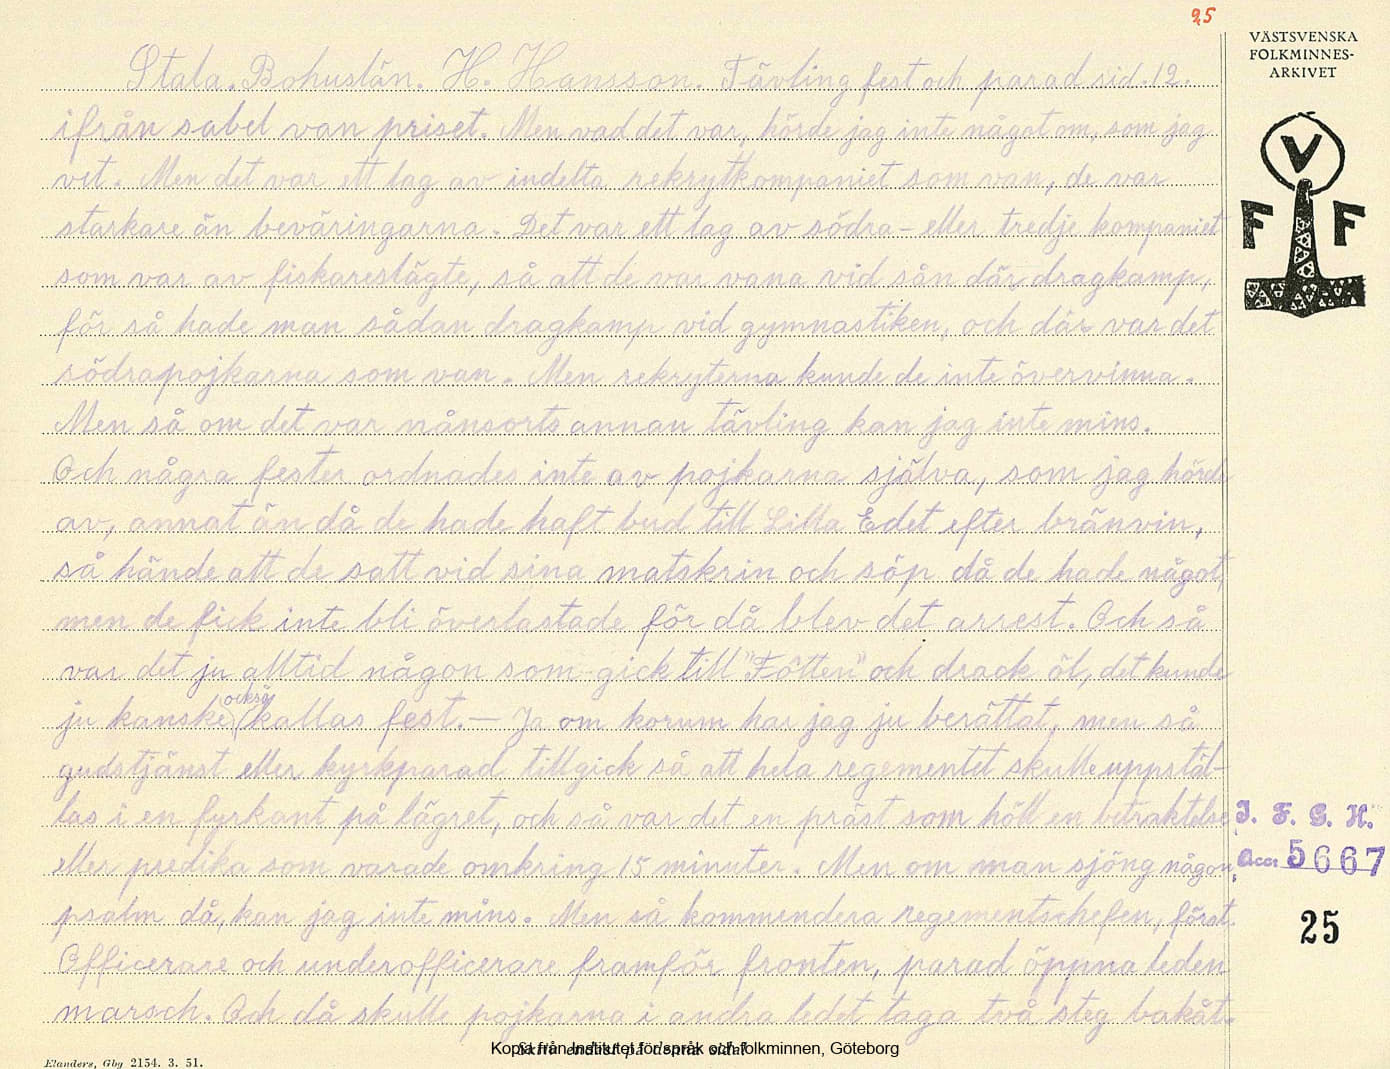 25
VÄSTSVENSKA
FOLKMINNES-
ARKIVET
V
F F
Stala. Bohuslän. H. Hansson. Tävling fest och parad sid. 12.
ifrån sabel van priset. Men vad det var, hörde jag inte något om, som jag
vet. Men det var ett lag av indelta rekrytkompaniet som van, de var
starkare än beväringarna. Det var ett lag av södra- eller tredje kompaniet
som var av fiskareslägte, så att de var vana vid sån där dragkamp,
för så hade man sådan dragkamp vid gymnastiken, och där var det
södrapojkarna som van. Men rekryterna kunde de inte övervinna.
Men så om det var nånsorts annan tävling kan jag inte mins.
Och några fester ordnades inte av pojkarna själva, som jag hörde
av, annat än då de hade haft bud till Lilla Edet efter bränvin,
så hände att de satt vid sina matskrin och söp då de hade något,
men de fick inte bli överlastade för då blev det arrest. Och så
var det ju alltid någon som gick till "Fötten" och drack öl, det kunde
ju kanske också kallas fest. — Ja om korum har jag ju berättat, men så
gudstjänst eller kyrkparad tillgick så att hela regementet skulle uppstäl-
las i en fyrkant på lägret, och så var det en präst som höll en betraktelse
eller predika som varade omkring 15 minuter. Men om man sjöng någon
psalm då, kan jag inte mins. Men så kommendera regementschefen, förat.
Officerare och underofficerare framför fronten, parad öppna leden
marsch. Och då skulle pojkarna i andra ledet taga två steg bakåt.
I. F. G. H.
Acc. 5667
25
Skriv endast på denna sida!
Kopia från Institutet för språk och folkminnen, Göteborg
Elanders, Gbg 2154. 3. 51.